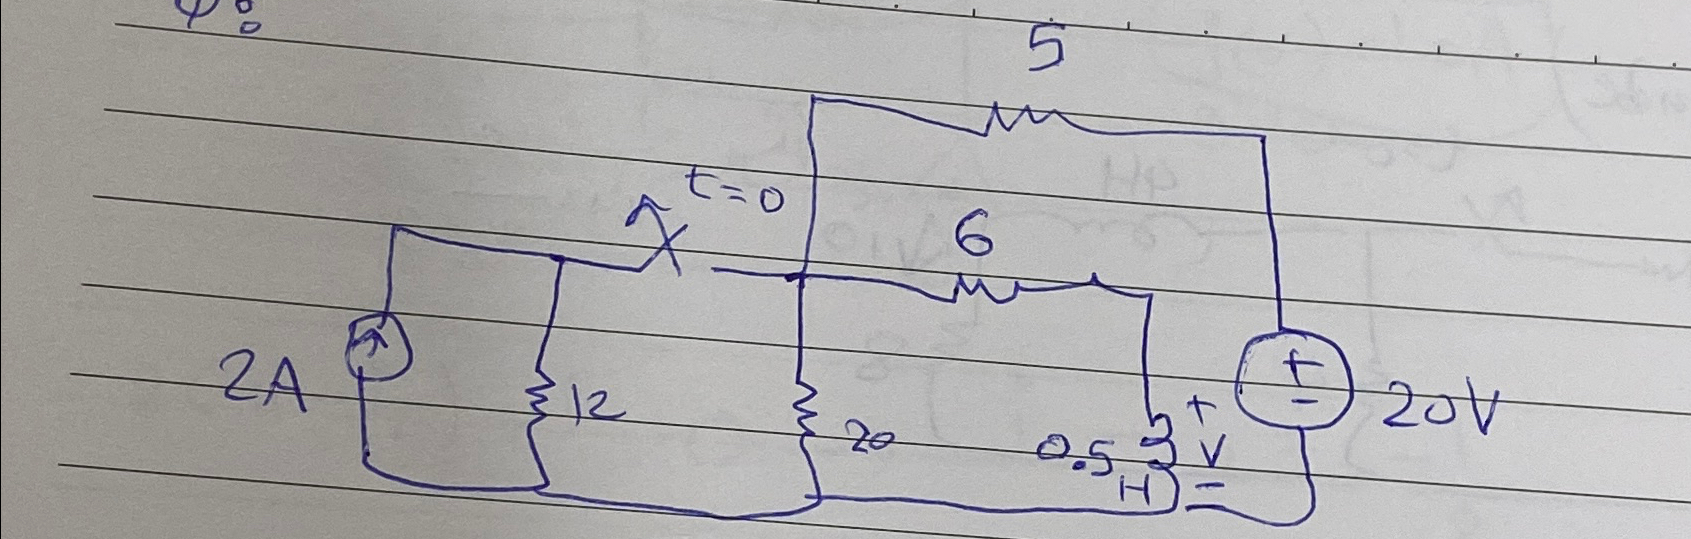 5
t=0
6
2A
12
20
0.5
H
+
V
-
+
-
20V